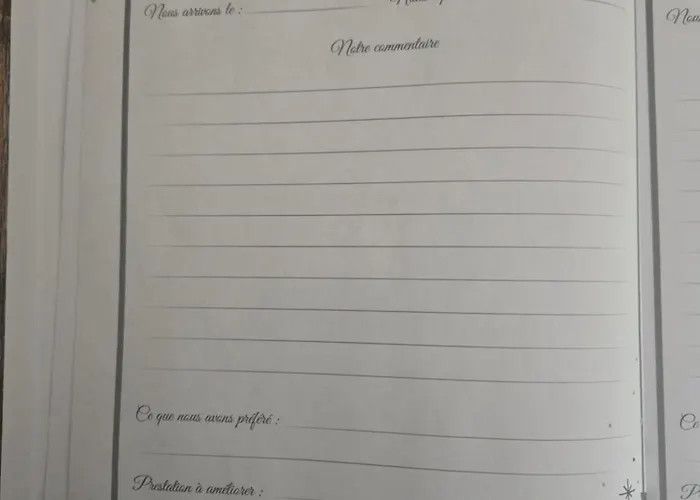 Nous arrivons le :
Nous
Notre commentaire
Ce que nous avons préféré :
Prestation à améliorer :